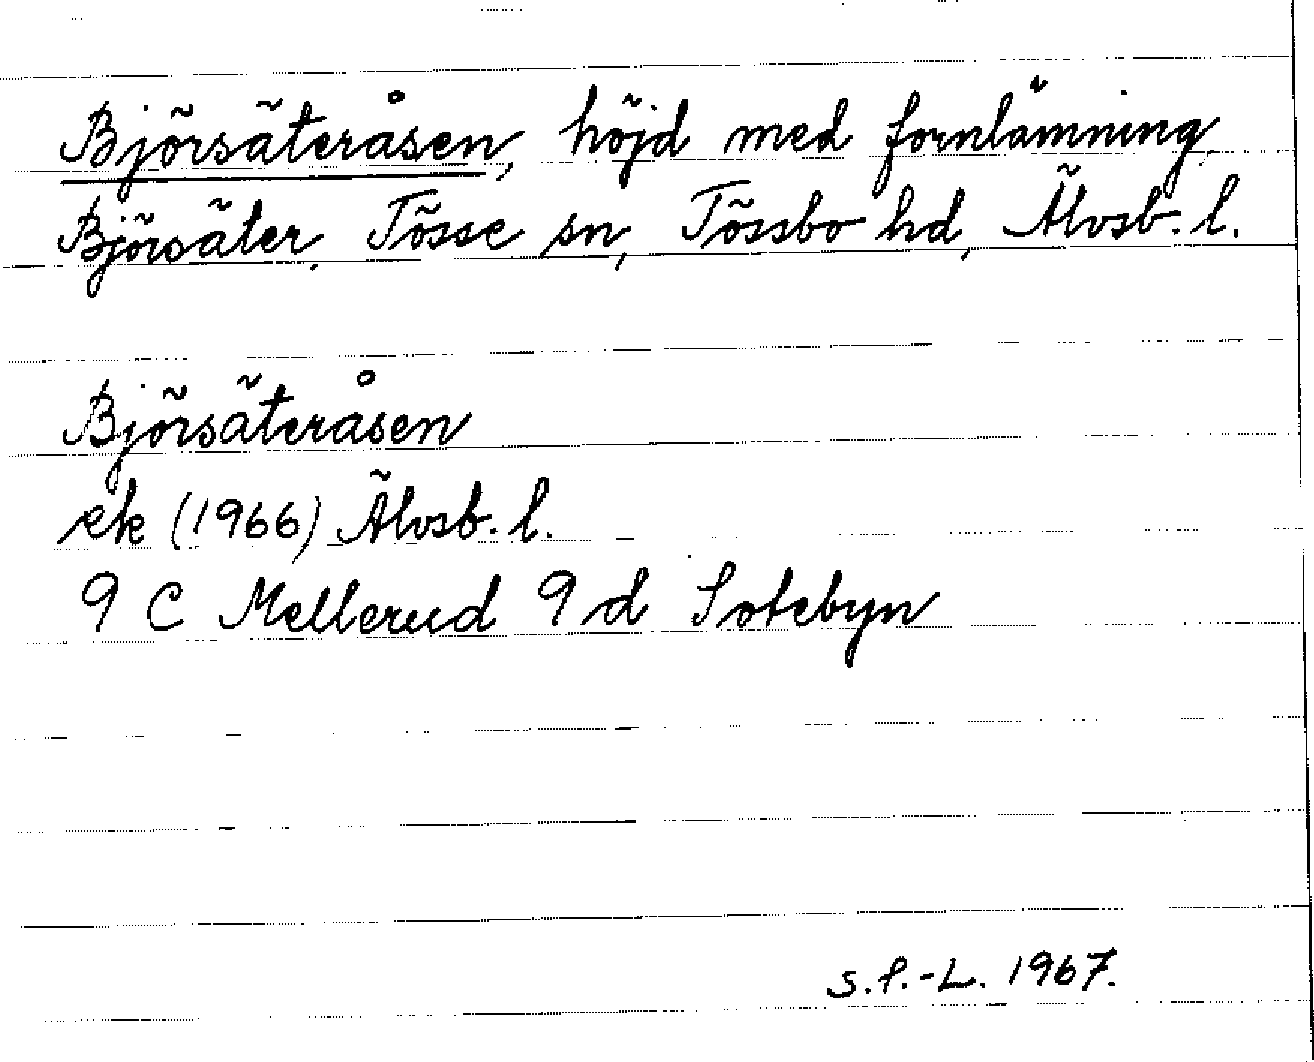 Björsäteråsen, höjd med fornlämning,
Björsäter, Tösse sn, Tössbo hd, Älvsb. l.
Björsäteråsen
ek (1966) Älvsb. l.
9 C Mellerud 9 d Sotebyn
S.P.-L. 1967.